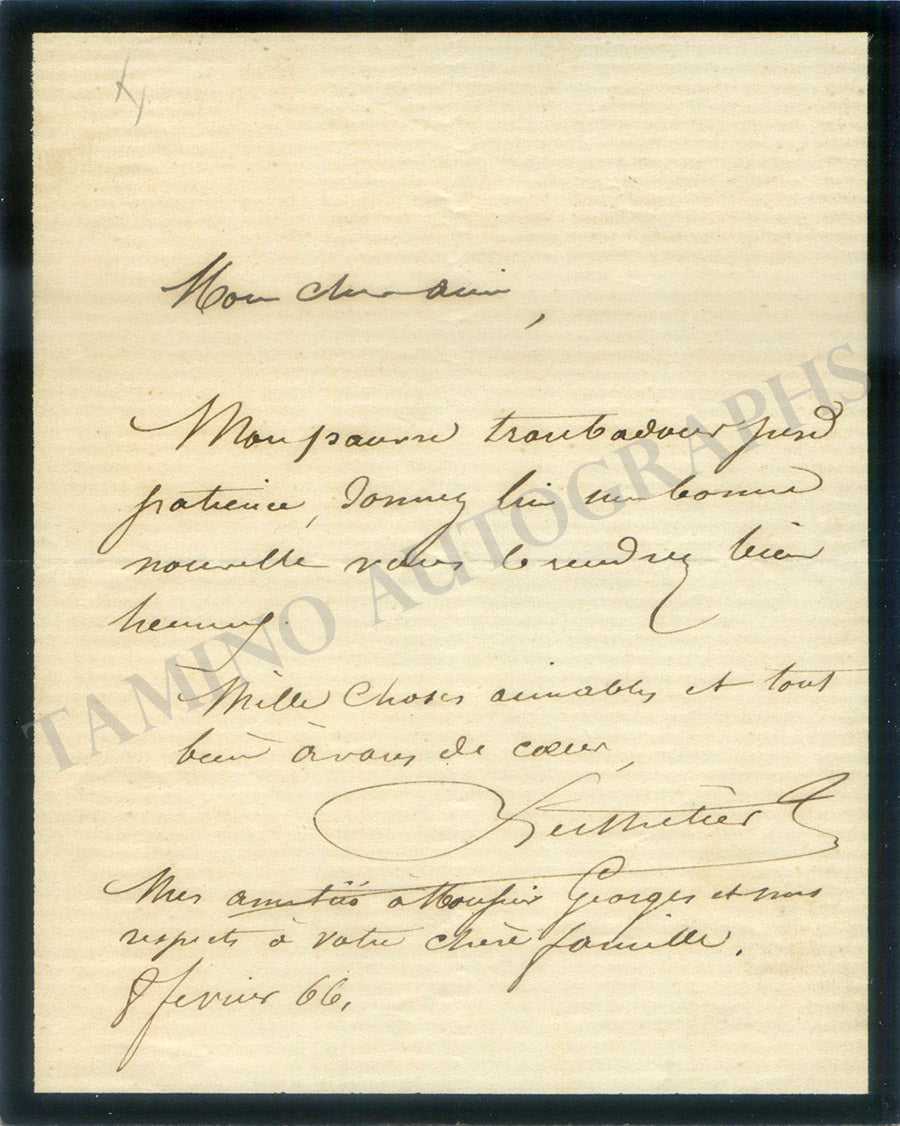 Mon cher ami,
Mon pauvre troubadour perd
patience, donnez lui une bonne
nouvelle vous le rendrez bien
heureux.
Mille choses aimables et tout
bien à vous de cœur,
Berthelier
Mes amitiés à Monsieur Georges et mes
respects à votre chère famille.
8 fevrier 66.
TAMINO AUTOGRAPHS